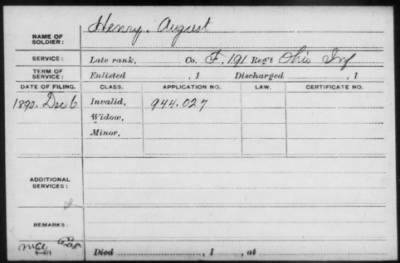 NAME OF SOLDIER: Henry. August
SERVICE: Late rank, Co. F, 191 Reg't Ohio Inf
TERM OF SERVICE: Enlisted , 1 Discharged , 1
DATE OF FILING. CLASS. APPLICATION NO. LAW. CERTIFICATE NO.
1890. Dec 6 Invalid, 944.027
Widow,
Minor,
ADDITIONAL SERVICES:
REMARKS:
Died , 1 , at